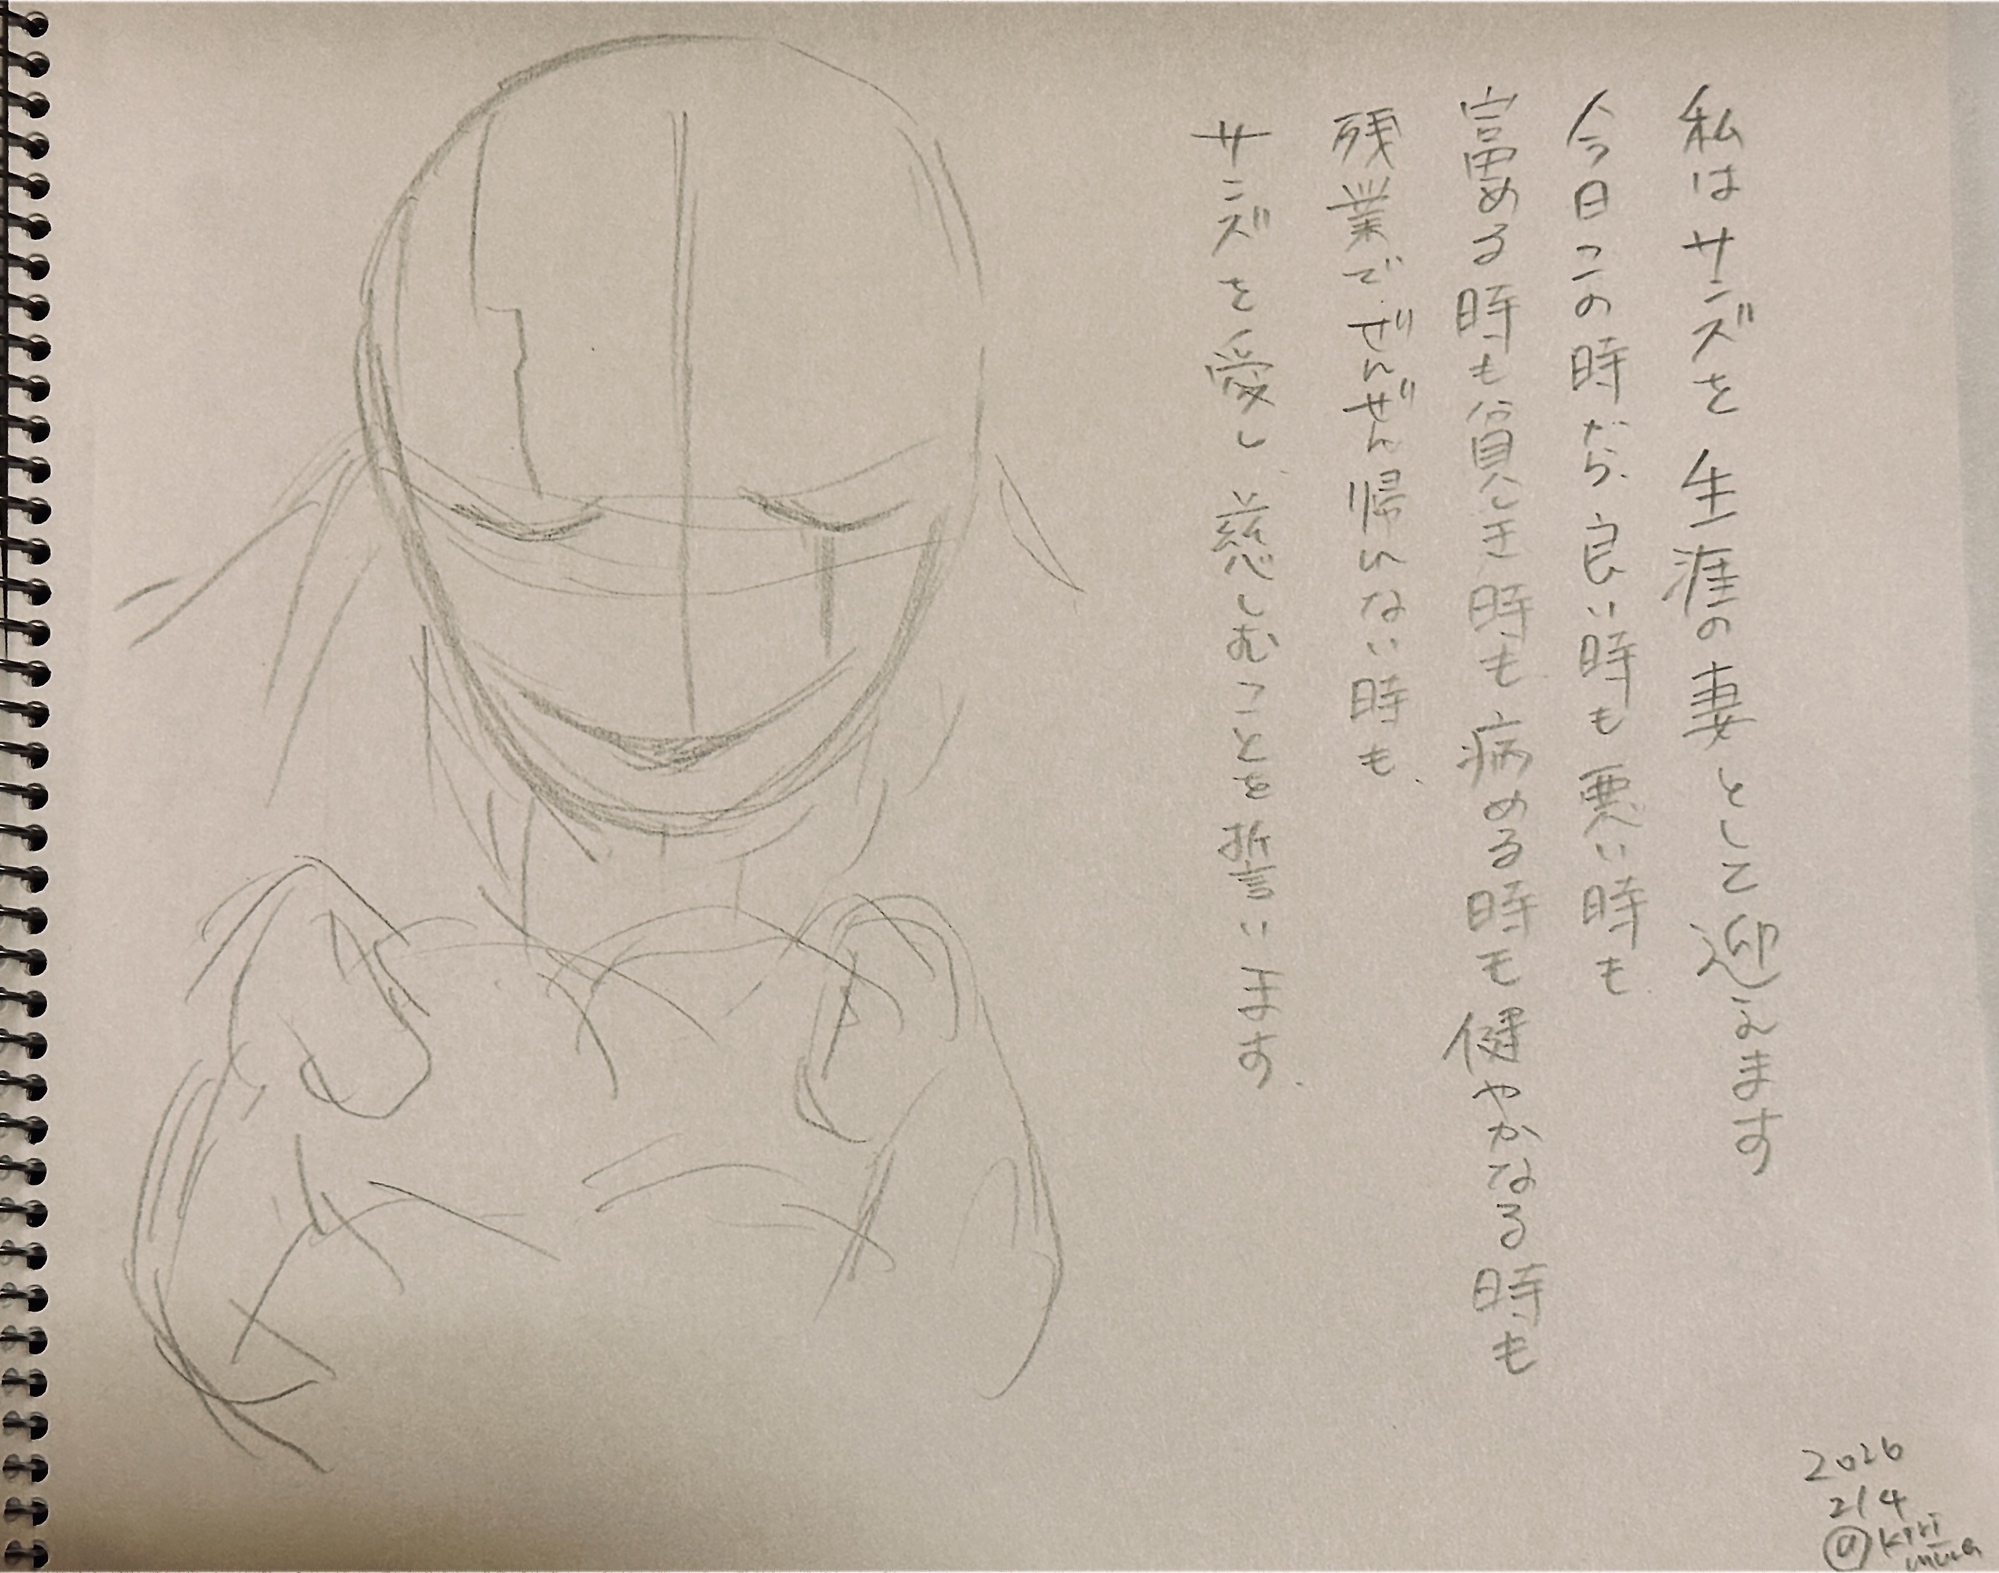 私はサンズを生涯の妻として迎えます
今日この時から、良い時も悪い時も
富める時も貧しき時も病める時も健やかなる時も
残業でぜんぜん帰れない時も
サンズを愛し、慈しむことを誓います
2026
2/4
@kiri
mura